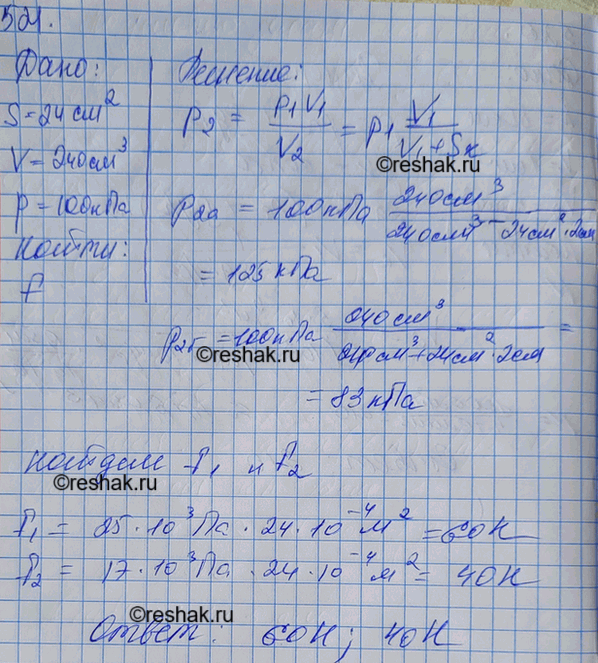 521.
Дано:
S = 24 см²
V = 240 см³
p = 100 кПа
Найти:
f
Решение:
p₂ = p₁V₁ / V₂ = p₁ V₁ / (V₁ + Sx)
©reshak.ru
p₂а = 100 кПа 240 см³ / (240 см³ − 24 см² · 2 см)
= 125 кПа
p₂б = 100 кПа 240 см³ / (240 см³ + 24 см² · 2 см) =
©reshak.ru
= 83 кПа
Найдём f₁ и f₂
©reshak.ru
f₁ = 25 · 10³ Па · 24 · 10⁻⁴ м² = 60 Н
f₂ = 17 · 10³ Па · 24 · 10⁻⁴ м² = 40 Н
©reshak.ru
Ответ: 60 Н; 40 Н